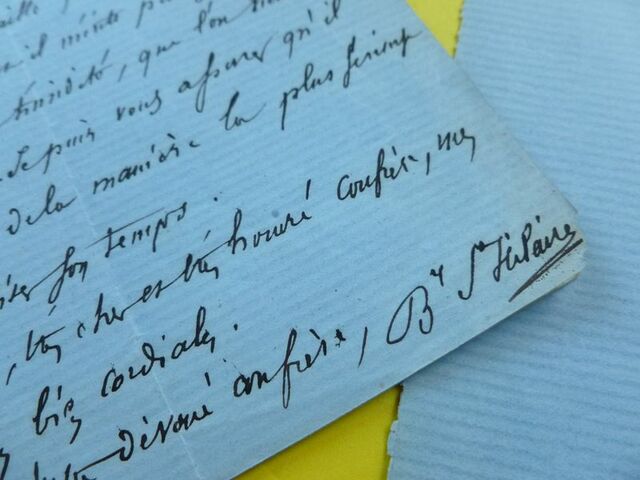 il mérite
timidité, que l'on
Je puis vous assurer qu'il
de la manière la plus sérieuse
son temps.
, très cher et très honoré confrère, mes
bien cordiales.
dévoué confrère, By St Hilaire